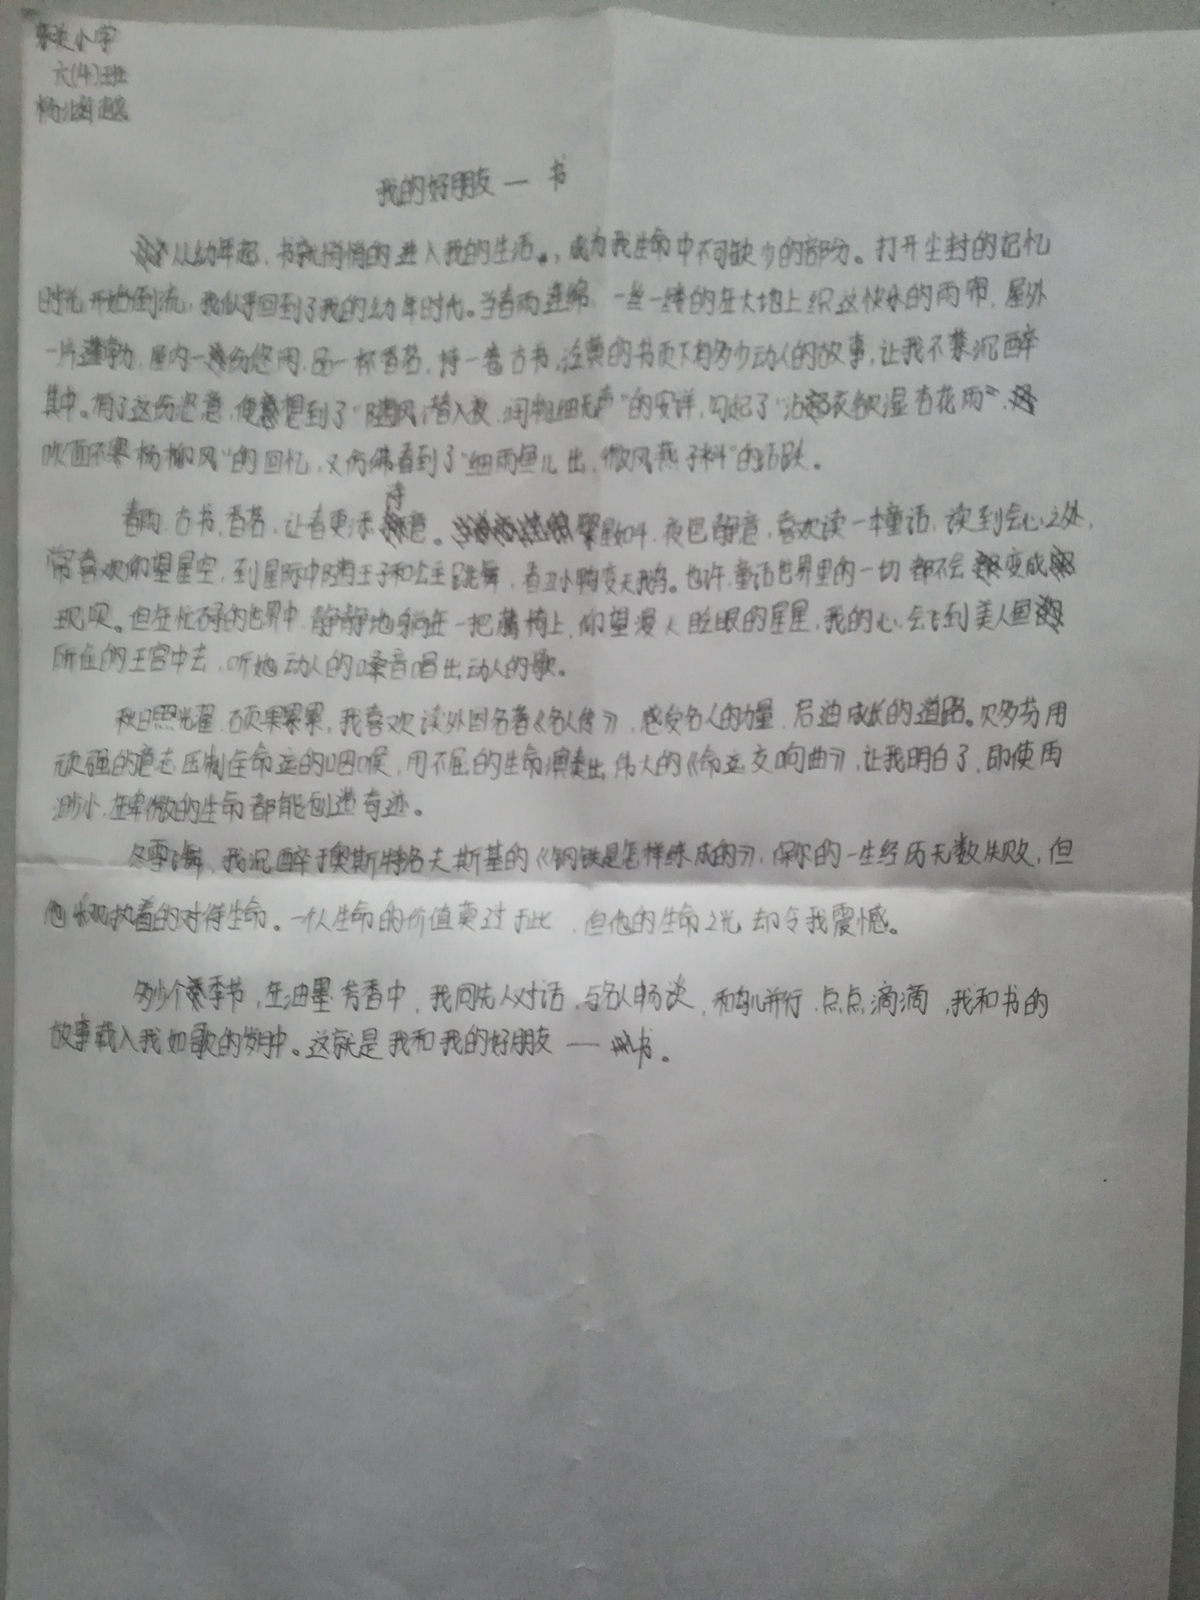 小学
六(4)班
杨涵越
我的好朋友 — 书
从幼年起,书就悄悄的进入我的生活,成为我生命中不可缺少的部分。打开尘封的记忆
时光开始倒流,我似乎回到了我的幼年时代。当春雨连绵,一丝一缕的在大地上织这快乐的雨帘,屋外
一片蓬勃,屋内一份悠闲,品一杯香茗,持一卷古书,泛黄的书页下有多少动人的故事,让我不禁沉醉
其中。有了这份诗意,便想到了"随风潜入夜,润物细无声"的安详,勾起了"沾衣欲湿杏花雨",
吹面不寒杨柳风"的回忆,又仿佛看到了"细雨鱼儿出,微风燕子斜"的活跃。
春雨,古书,香茗,让春更添诗意。繁星如斗,夜色静意,喜欢读一本童话,读到会心之处,
常喜欢仰望星空,到星际中随王子和公主跳舞,看丑小鸭变天鹅。也许,童话世界里的一切都不会变成
现实。但在忙碌的世界中,静静地躺在一把藤椅上,仰望漫人眨眼的星星,我的心,会飞到美人鱼
所住的王宫中去,听她动人的嗓音唱出动人的歌。
秋日照光耀,硕果累累,我喜欢读外国名著《名人传》,感受名人的力量,启迪成长的道路。贝多芬用
顽强的意志压制住命运的咽喉,用不屈的生命演奏出伟大的《命运交响曲》,让我明白了,即使再
渺小,在卑微的生命都能创造奇迹。
冬雪飞舞,我沉醉于奥斯特洛夫斯基的《钢铁是怎样练成的》,保尔的一生经历无数失败,但
他乐观执着的对待生命。一个人生命的价值莫过于此,但他的生命之光却令我震憾。
多少个季节,在油墨芳香中,我同先人对话,与名人畅谈,和幼儿并行,点点滴滴,我和书的
故事载入我如歌的岁月中。这就是我和我的好朋友 —— 书。